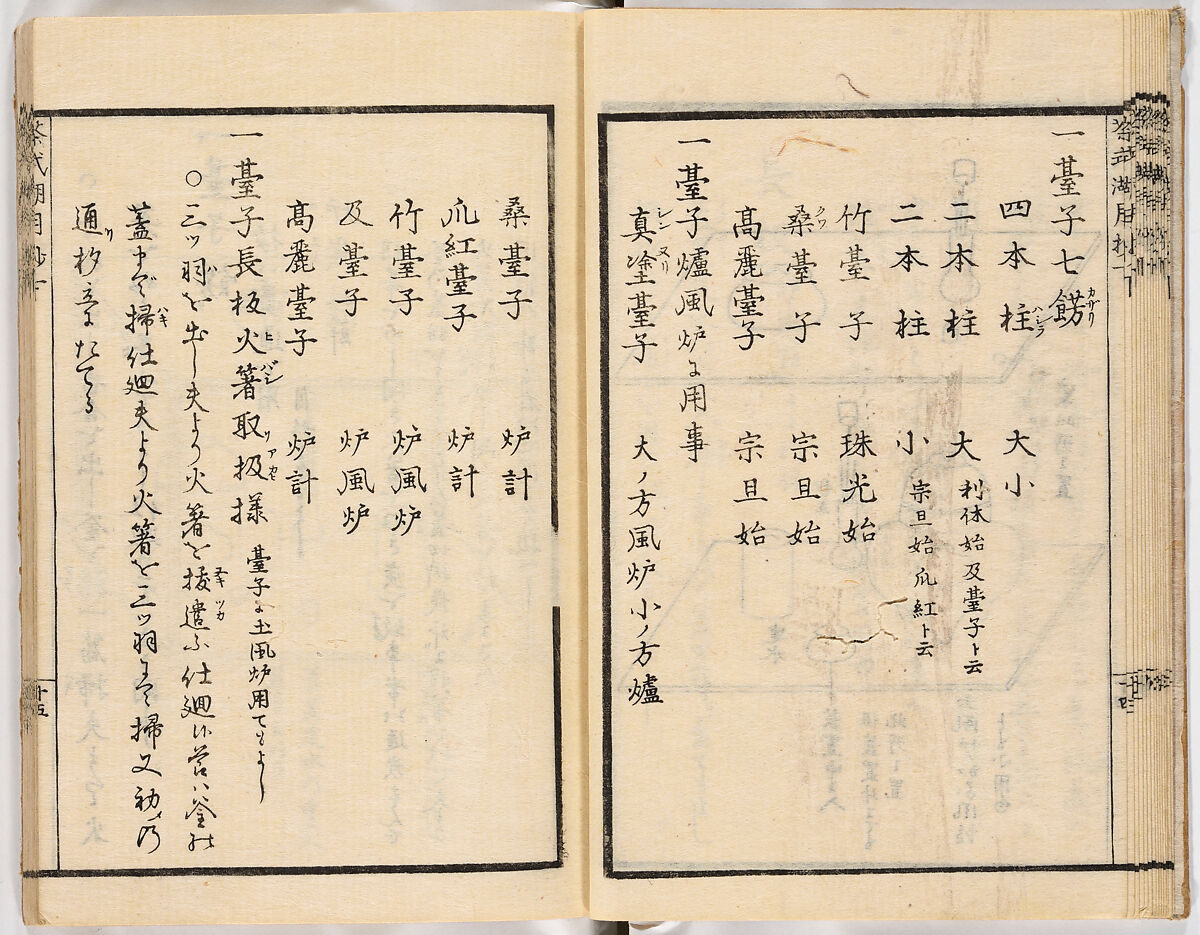 一臺子七餝カザリ
四本柱ハシラ 大小
二本柱 大 利休始及臺子ト云
二本柱 小 宗旦始爪紅ト云
竹臺子 珠光始
桑クワ臺子 宗旦始
髙麗臺子 宗旦始
一臺子爐風炉に用事
真シン塗ヌリ臺子 大ノ方風炉小ノ方爐
十四
桑臺子 炉計
爪紅臺子 炉計
竹臺子 炉風炉
及臺子 炉風炉
髙麗臺子 炉計
一臺子長板火ヒ箸バシ取トリ扱アツカ様 臺子に土風炉用てもよし
○三ッ羽を出し夫より火箸を抜ヌキ遣ツカふ仕廻は常ハ釜の
蓋 掃ハキ仕廻夫より火箸を三ッ羽 掃又初メの
通リ
十五